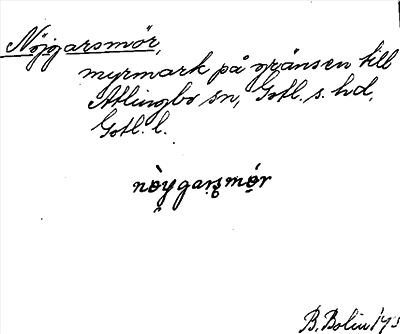 Nöjgarsmör,
myrmark på gränsen till
Atlingbo sn, Gotl. s. hd,
Gotl. l.
nòygarsmo̤r
B. Bolin